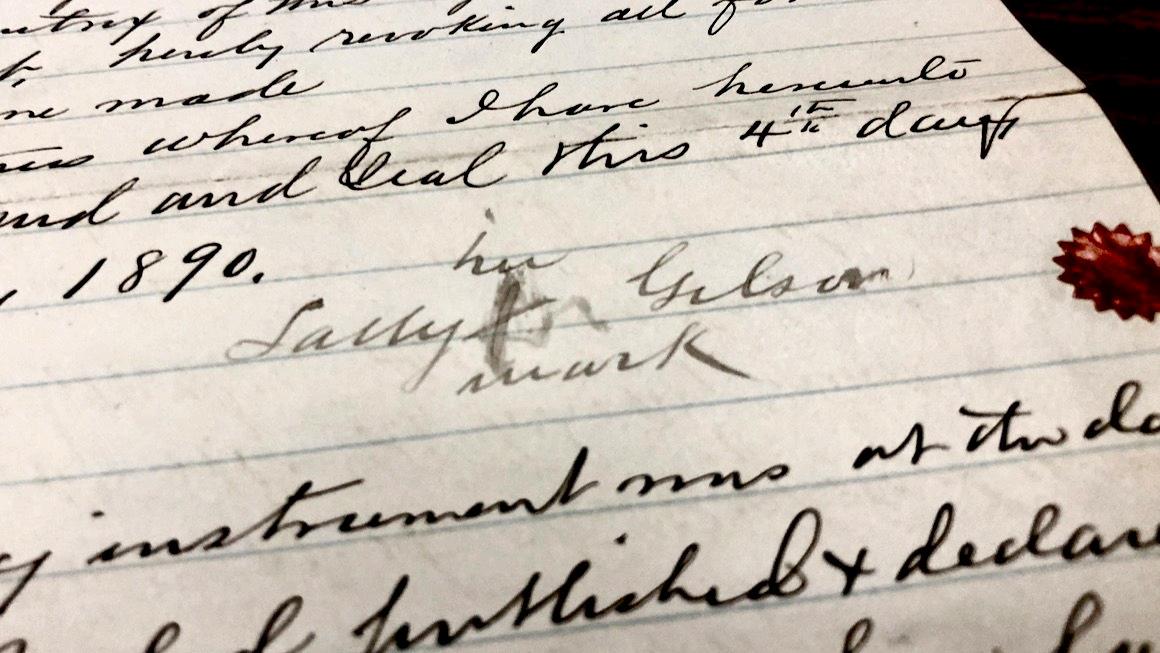 of this
hereby revoking all for
made
whereof I have hereunto
and and Seal this 4th day of
1890.
her
Sally Gilson
mark
instrument was at the da
published & declare